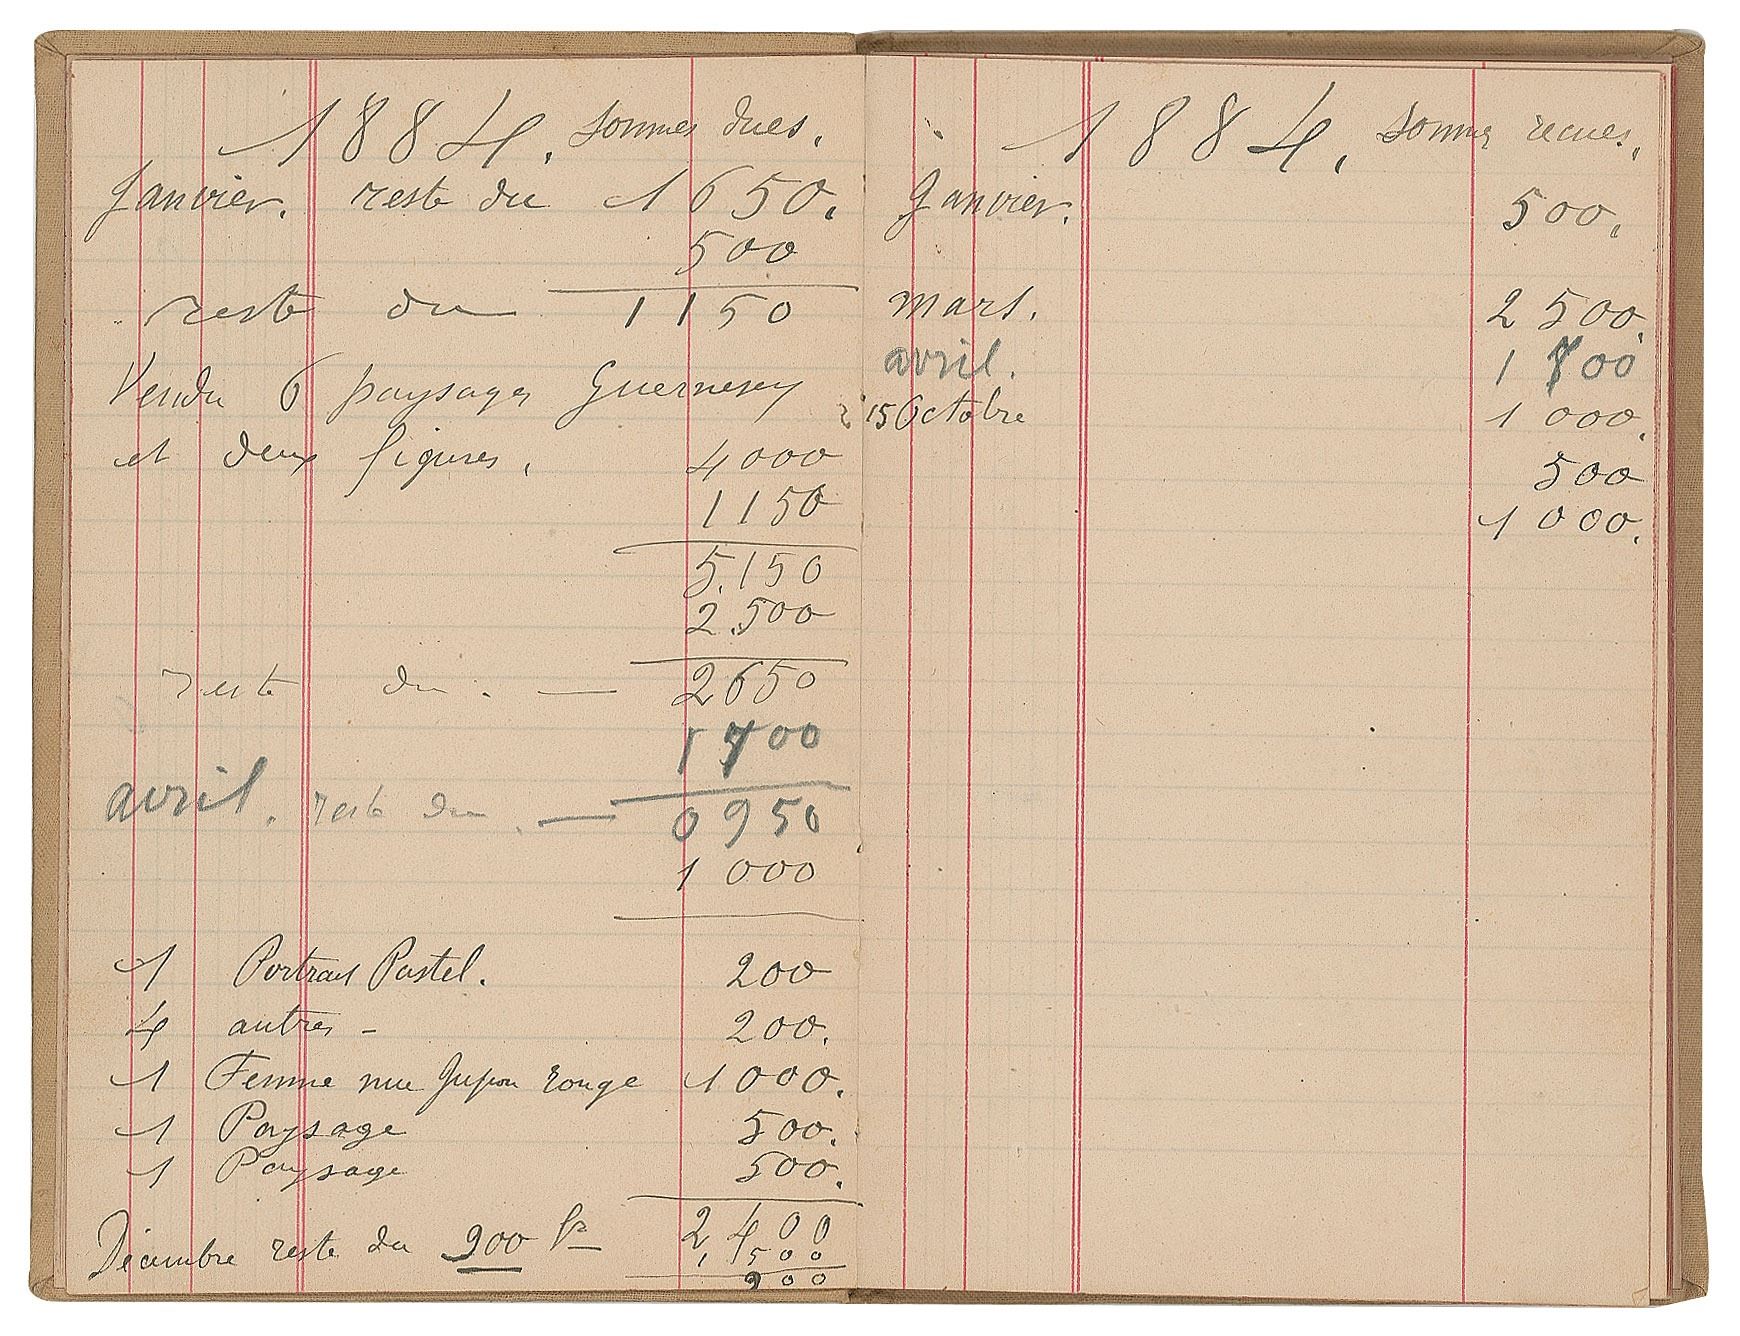 1884. sommes dues.
Janvier. reste du 1650.
500
reste du 1150
Vendu 6 paysages Guernesey
et deux figures. 4000
1150
5.150
2.500
reste du. — 2650
1700
avril. reste du. — 0950
1000
1 Portrait Pastel. 200
4 autres - 200.
1 Femme nue Jupon rouge 1000.
1 Paysage 500.
1 Paysage 500.
2400
Décembre reste du 900 fr 1500
900
1884. sommes recues.
Janvier. 500.
mars. 2500.
avril. 1700
15 Octobre 1000.
500
1000.